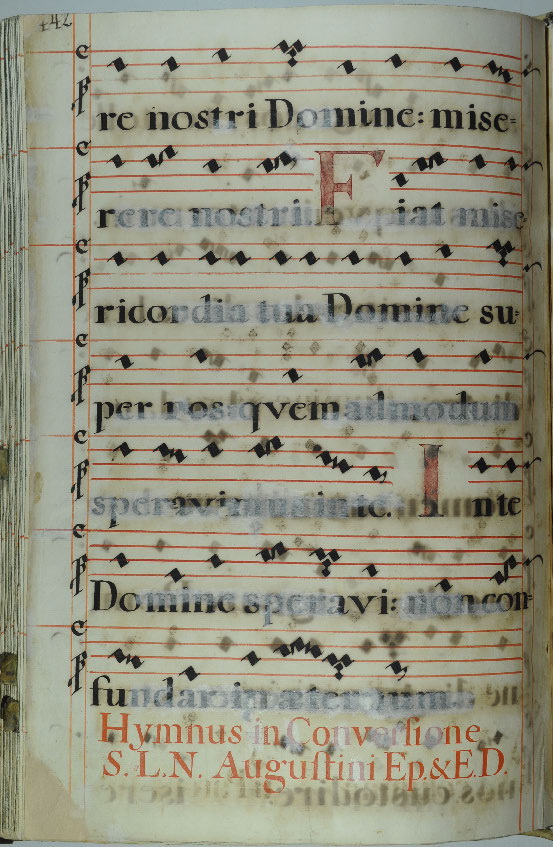 442
re nostri Domine: mise=
rere nostri. Fiat mise
ricordia tua Domine su=
per nos qvem admodum
speravimus in te. In te
Domine speravi: non con=
fundar in æternum.
Hymnus in Converſione
S. L. N. Auguſtini Ep. & E. D.